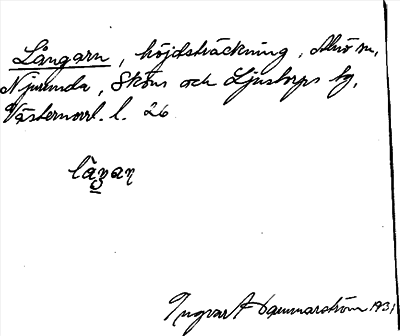 Långarn, höjdsträckning, Alnö m.,
Njurunda, Sköns och Ljustorps tg,
Västernorrl. l. 26
låŋaɳ
Ingvar Hammarström 1931